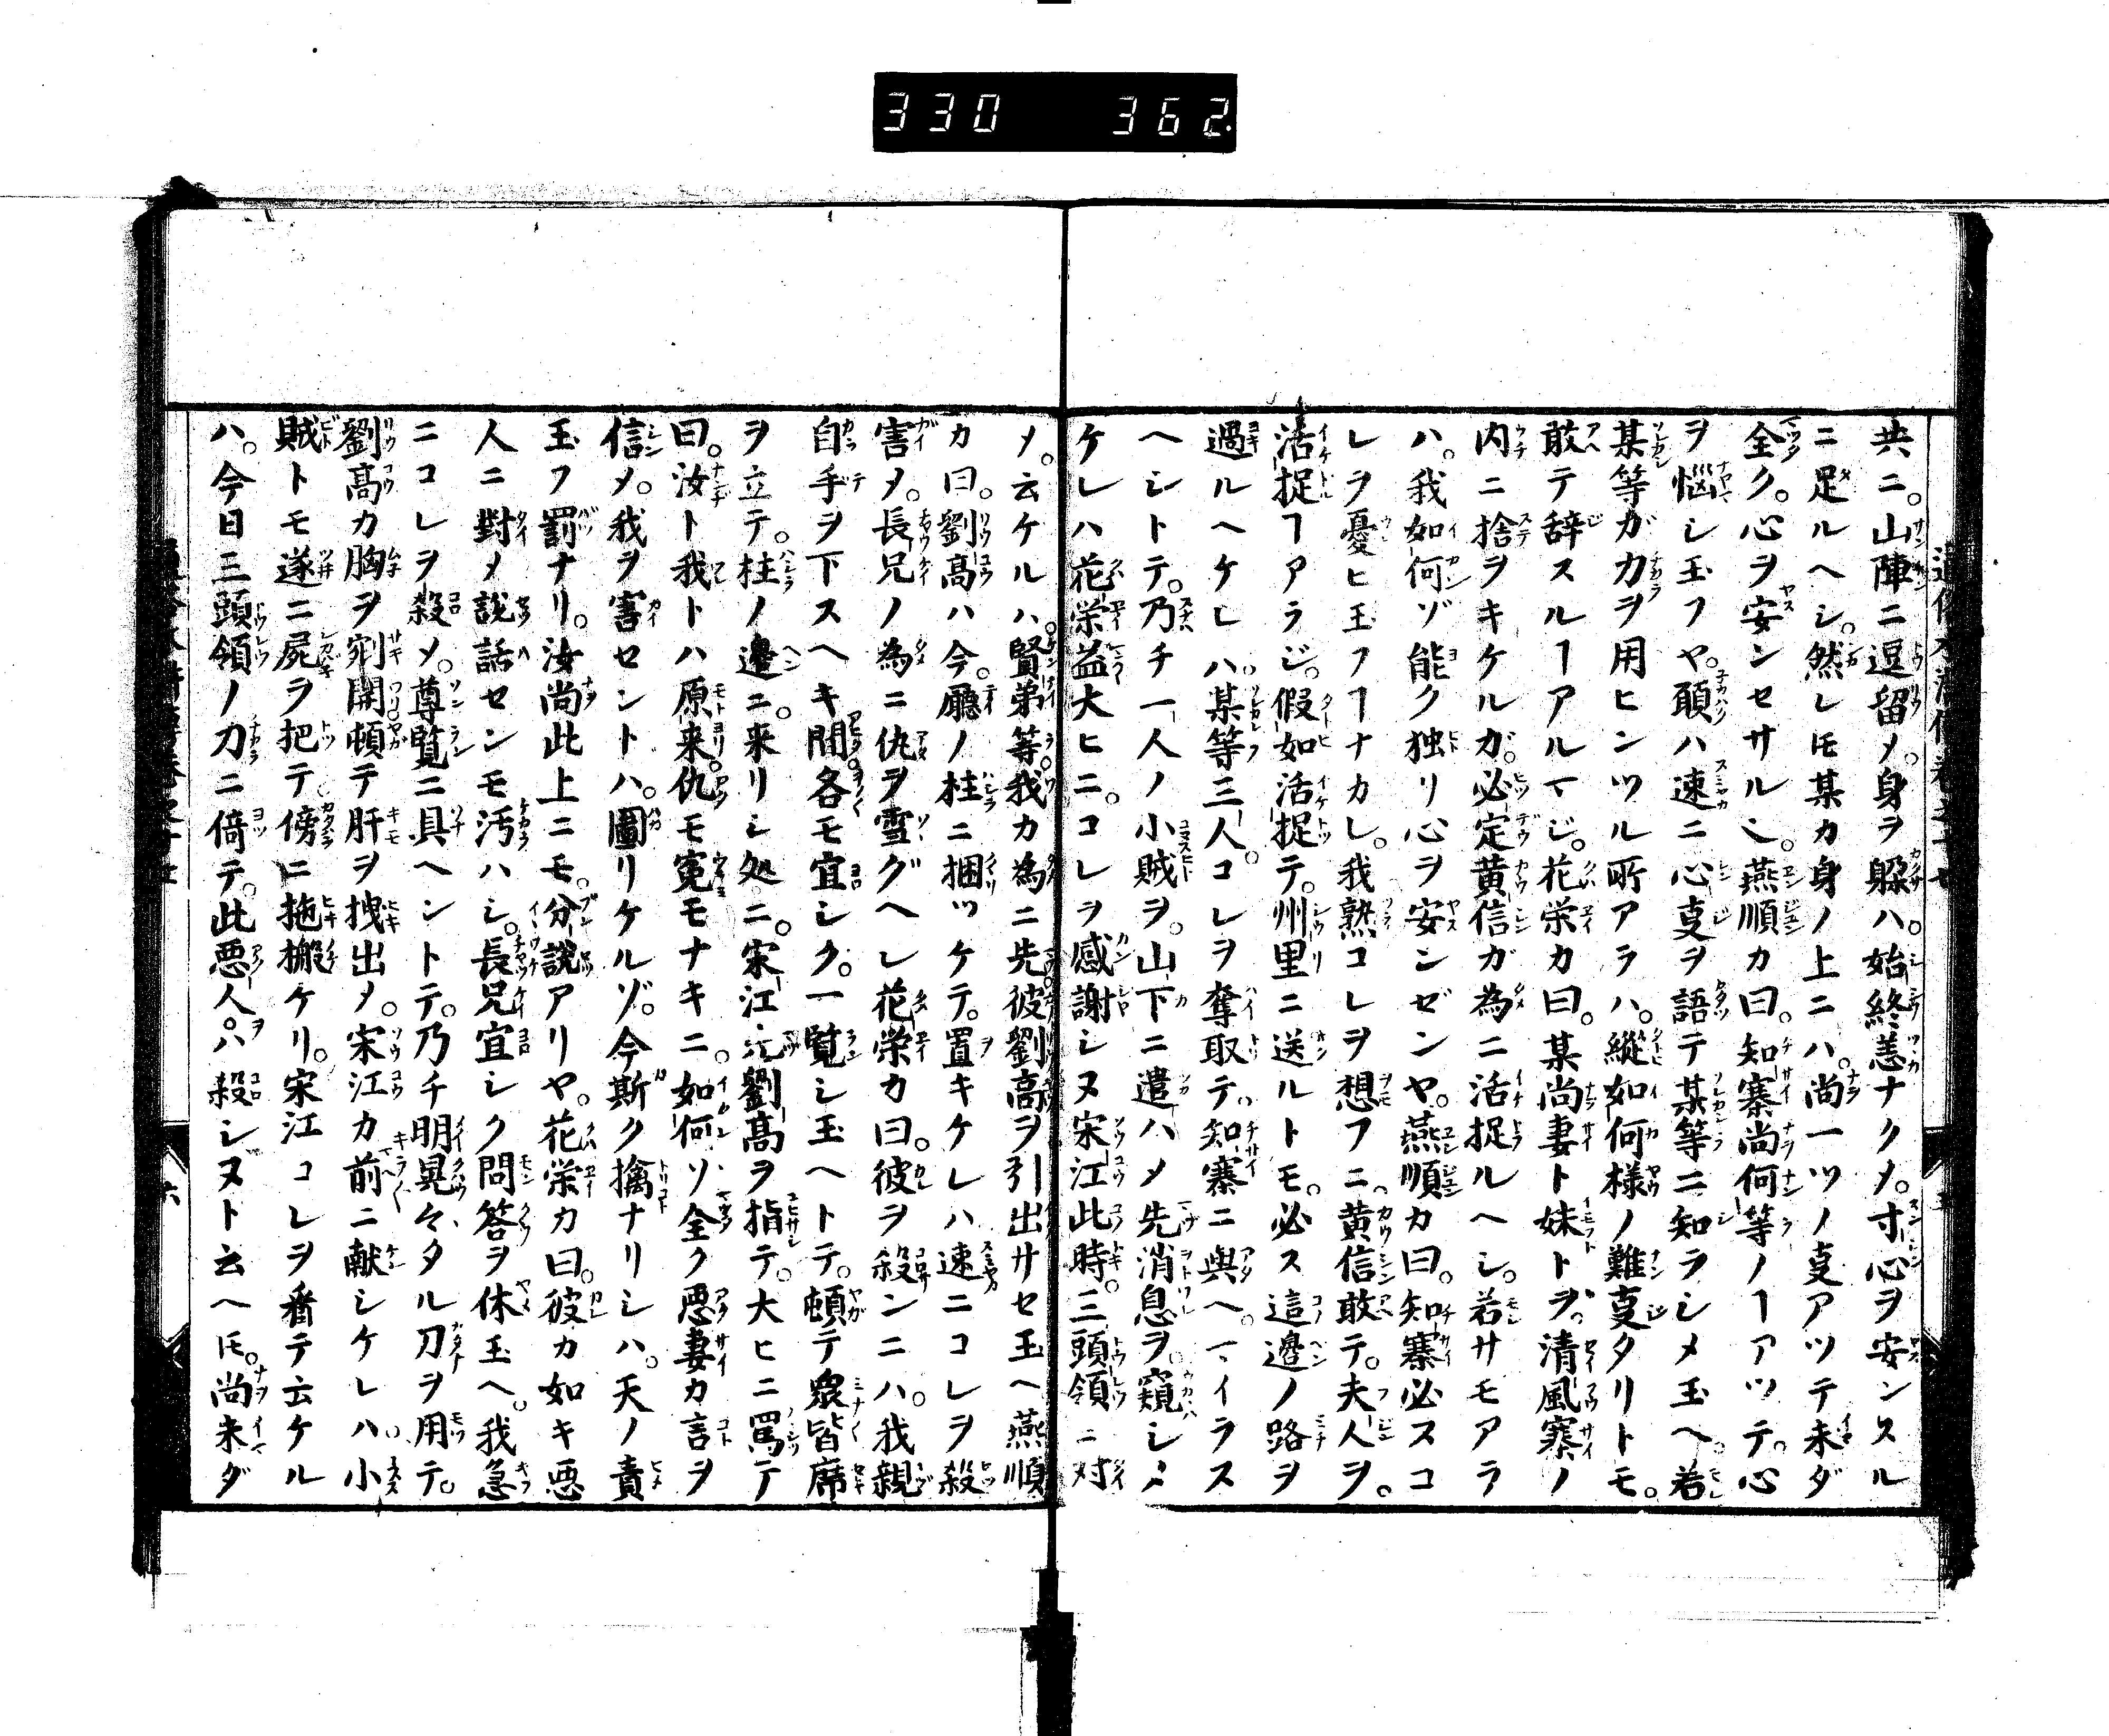 330 362
共ニ。山陣ニ逗留〆。身ヲ躱ハ。始終恙ナク〆。寸心ヲ安ンスル
ニ足ルヘシ。然レ𪜈某カ身ノ上ニハ。尚一ツノ㕝アツテ未ダ
全ク。心ヲ安ンセサル也。燕順カ曰。知寨尚何等ノヿアツテ。心
ヲ悩シ玉フヤ。願ハ速ニ心㕝ヲ語テ某等ニ知ラシメ玉ヘ。若
某等ガ力ヲ用ヒンツル所アラハ。縦如何様ノ難㕝タリトモ。
敢テ辞スルヿアルマジ。花栄カ曰。某尚妻ト妹トヲ。清風寨ノ
内ニ捨ヲキケルガ。必定黄信ガ為ニ活捉ルヘシ。若サモアラ
ハ。我如何ゾ能ク独リ心ヲ安ンゼンヤ。燕順カ曰。知寨必スコ
レヲ憂ヒ玉フヿナカレ。我熟コレヲ想フニ。黄信敢テ。夫人ヲ。
活捉ヿアラジ。假如活捉テ。州里ニ送ルトモ。必ス這邉ノ路ヲ
過ルヘケレハ。某等三人。コレヲ奪取テ。知寨ニ與ヘ。マイラス
ヘシトテ。乃チ一人ノ小賊ヲ。山下ニ遣ハ〆先消息ヲ。窺シ〆
ケレハ花栄益大ヒニ。コレヲ感謝シヌ宋江此時。三頭領ニ対
〆。云ケルハ。賢弟等。我カ為ニ先彼劉高ヲ引出サセ玉ヘ燕順
カ曰。劉高ハ今。廳ノ柱ニ捆ツケテ。置キケレハ速ニコレヲ殺
害〆。長兄ノ為ニ仇ヲ雪グヘシ花栄カ曰。彼ヲ殺ンニハ。我親
自手ヲ下スヘキ間。各モ宜シク。一覧シ玉ヘトテ。頓テ衆皆席
ヲ立テ。柱ノ邉ニ。来リシ処ニ。宋江先劉高ヲ指テ。大ヒニ罵テ
曰。汝ト我トハ原来。仇モ寃モナキニ。如何ソ。全ク悪妻カ言ヲ
信〆。我ヲ害セントハ。圖リケルゾ。今斯ク擒ナリシハ。天ノ責
玉フ罰ナリ。汝尚此上ニモ。分説アリヤ。花栄カ曰。彼カ如キ悪
人ニ對〆説話センモ汚ハシ。長兄宜シク問答ヲ休玉ヘ。我急
ニコレヲ殺〆。尊覧ニ具ヘントテ。乃チ明晃々タル刀ヲ用テ。
劉高カ胸ヲ剜開頓テ肝ヲ拽出〆。宋江カ前ニ献シケレハ小
賊トモ遂ニ屍ヲ把テ傍ニ拖搬ケリ。宋江コレヲ看テ云ケル
ハ。今日三頭領ノ力ニ倚テ。此悪人。ハ殺シヌト云ヘ𪜈。尚未ダ
六